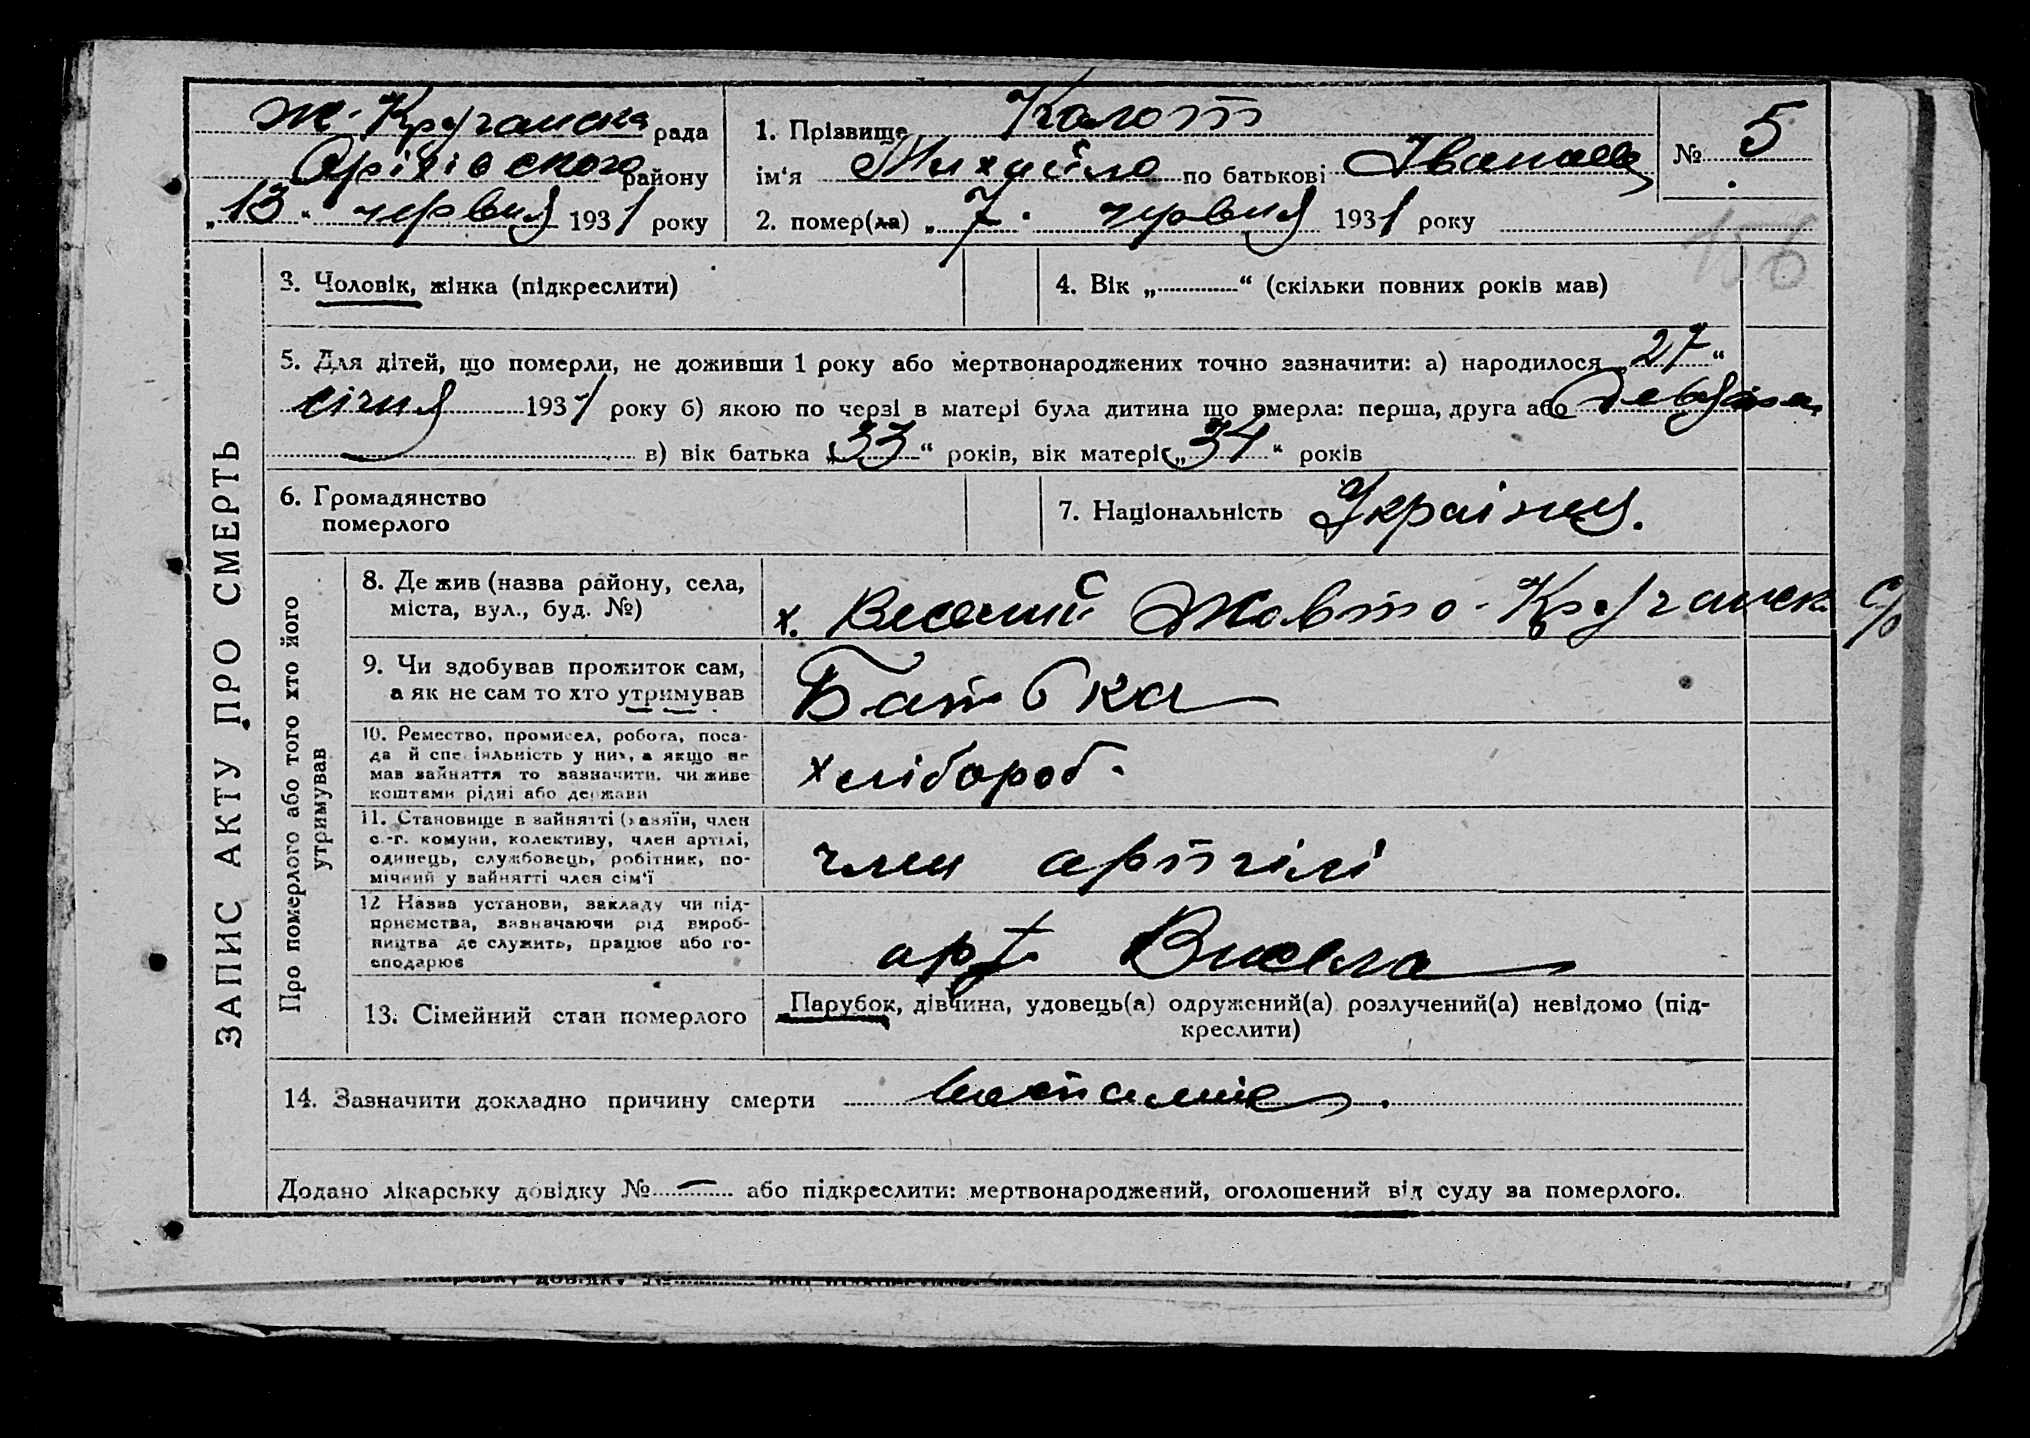 Ж-Кручанська рада
Оріхівського району
„13“ червня 1931 року
1. Прізвище Калот
ім'я Михайло по батькові
2. помер(ла) „7“ червня 1931 року
№ 5
156
3. Чоловік, жінка (підкреслити)
4. Вік „ “ (скільки повних років мав)
5. Для дітей, що померли, не доживши 1 року або мертвонароджених точно зазначити: а) народилося „27“
січня 1931 року б) якою по черзі в матері була дитина що вмерла: перша, друга або
в) вік батька „33“ років, вік матері „34“ років
6. Громадянство
померлого
7. Національність Українця.
ЗАПИС АКТУ ПРО СМЕРТЬ
Про померлого або того хто його
утримував
8. Де жив (назва району, села,
міста, вул., буд. №)
х. Веселий Жовто-Кручанск. с/р
9. Чи здобував прожиток сам,
а як не сам то хто утримував
Батька
10. Ремество, промисел, робота, поса-
да й спеціяльність у них, а якщо не
мав зайняття то зазначити, чи живе
коштами рідні або держави
хлібороб.
11. Становище в зайнятті (хазяїн, член
с.-г. комуни, колективу, член артілі,
одинець, службовець, робітник, по-
мічний у зайнятті член сім'ї
член артілі
12 Назва установи, закладу чи під-
приємства, зазначаючи рід вироб-
ництва де служить, працює або го-
сподарює
арт.
13. Сімейний стан померлого
Парубок, дівчина, удовець(а) одружений(а) розлучений(а) невідомо (під-
креслити)
14. Зазначити докладно причину смерти
Додано лікарську довідку № – або підкреслити: мертвонароджений, оголошений від суду за померлого.